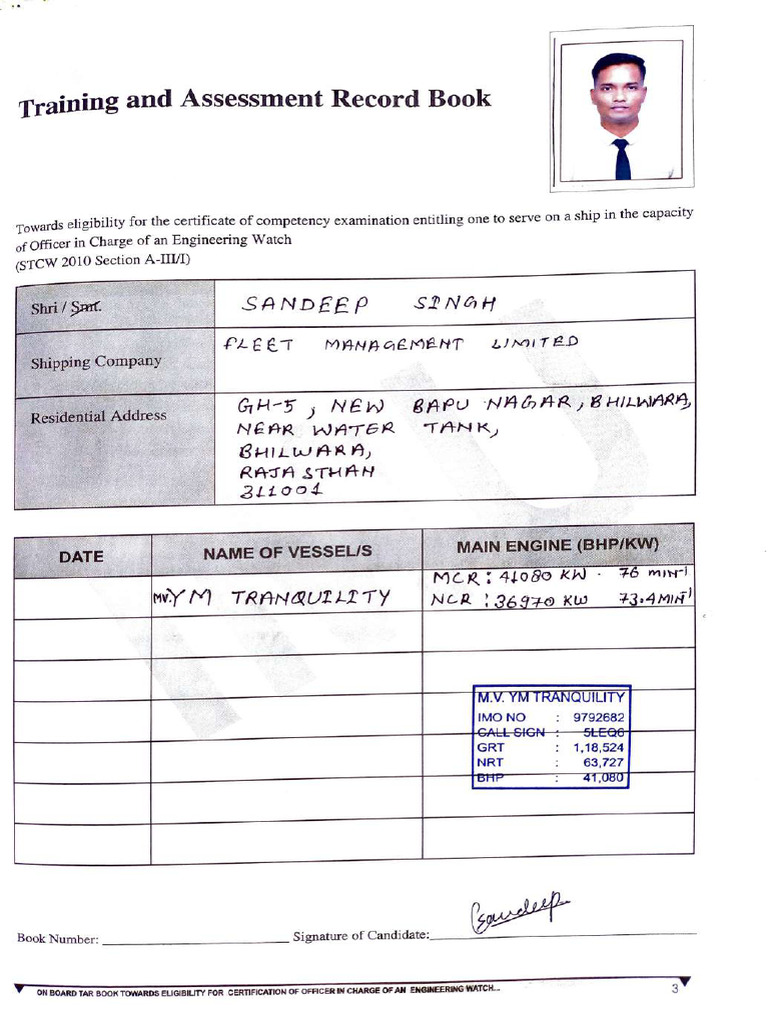 Training and Assessment Record Book
Towards eligibility for the certificate of competency examination entitling one to serve on a ship in the capacity
of Officer in Charge of an Engineering Watch
(STCW 2010 Section A-III/I)
Shri / Smt. SANDEEP SINGH
Shipping Company FLEET MANAGEMENT LIMITED
Residential Address GH-5, NEW BAPU NAGAR, BHILWARA,
NEAR WATER TANK,
BHILWARA,
RAJASTHAN
311001
DATE NAME OF VESSEL/S MAIN ENGINE (BHP/KW)
MV. YM TRANQUILITY MCR : 41080 KW . 76 MIN-1
NCR : 36970 KW 73.4 MIN-1
M.V. YM TRANQUILITY
IMO NO : 9792682
CALL SIGN : 5LEQ6
GRT : 1,18,524
NRT : 63,727
BHP : 41,080
Sandeep
Book Number: Signature of Candidate:
ON BOARD TAR BOOK TOWARDS ELIGIBILITY FOR CERTIFICATION OF OFFICER IN CHARGE OF AN ENGINEERING WATCH... 3